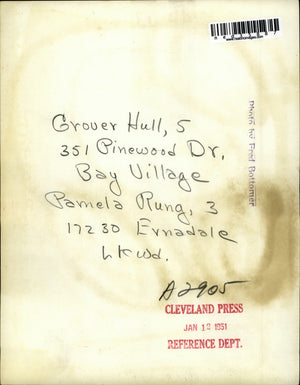 Grover Hull, 5
351 Pinewood Dr.
Bay Village
Pamela Rung, 3
17230 Ernadale
Lkwd.
A2905
CLEVELAND PRESS
JAN 12 1951
REFERENCE DEPT.
Photo by Fred Bottomer